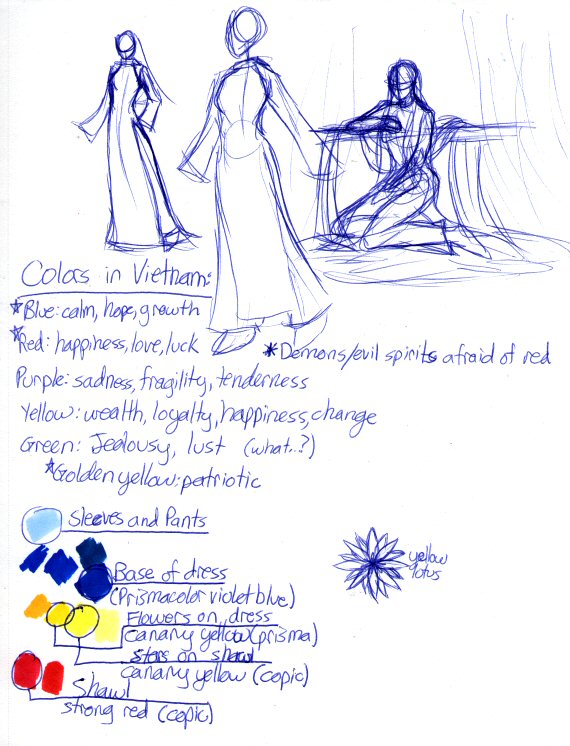 Colors in Vietnam:
*Blue: calm, hope, growth
*Red: happiness, love, luck
*Demons/evil spirits afraid of red
Purple: sadness, fragility, tenderness
Yellow: wealth, loyalty, happiness, change
Green: Jealousy, lust (what..?)
*Golden yellow: patriotic
Sleeves and Pants
yellow
lotus
Base of dress
(Prismacolor violet blue)
Flowers on dress
canary yellow (prisma)
Stars on shawl
canary yellow (copic)
Shawl
strong red (copic)